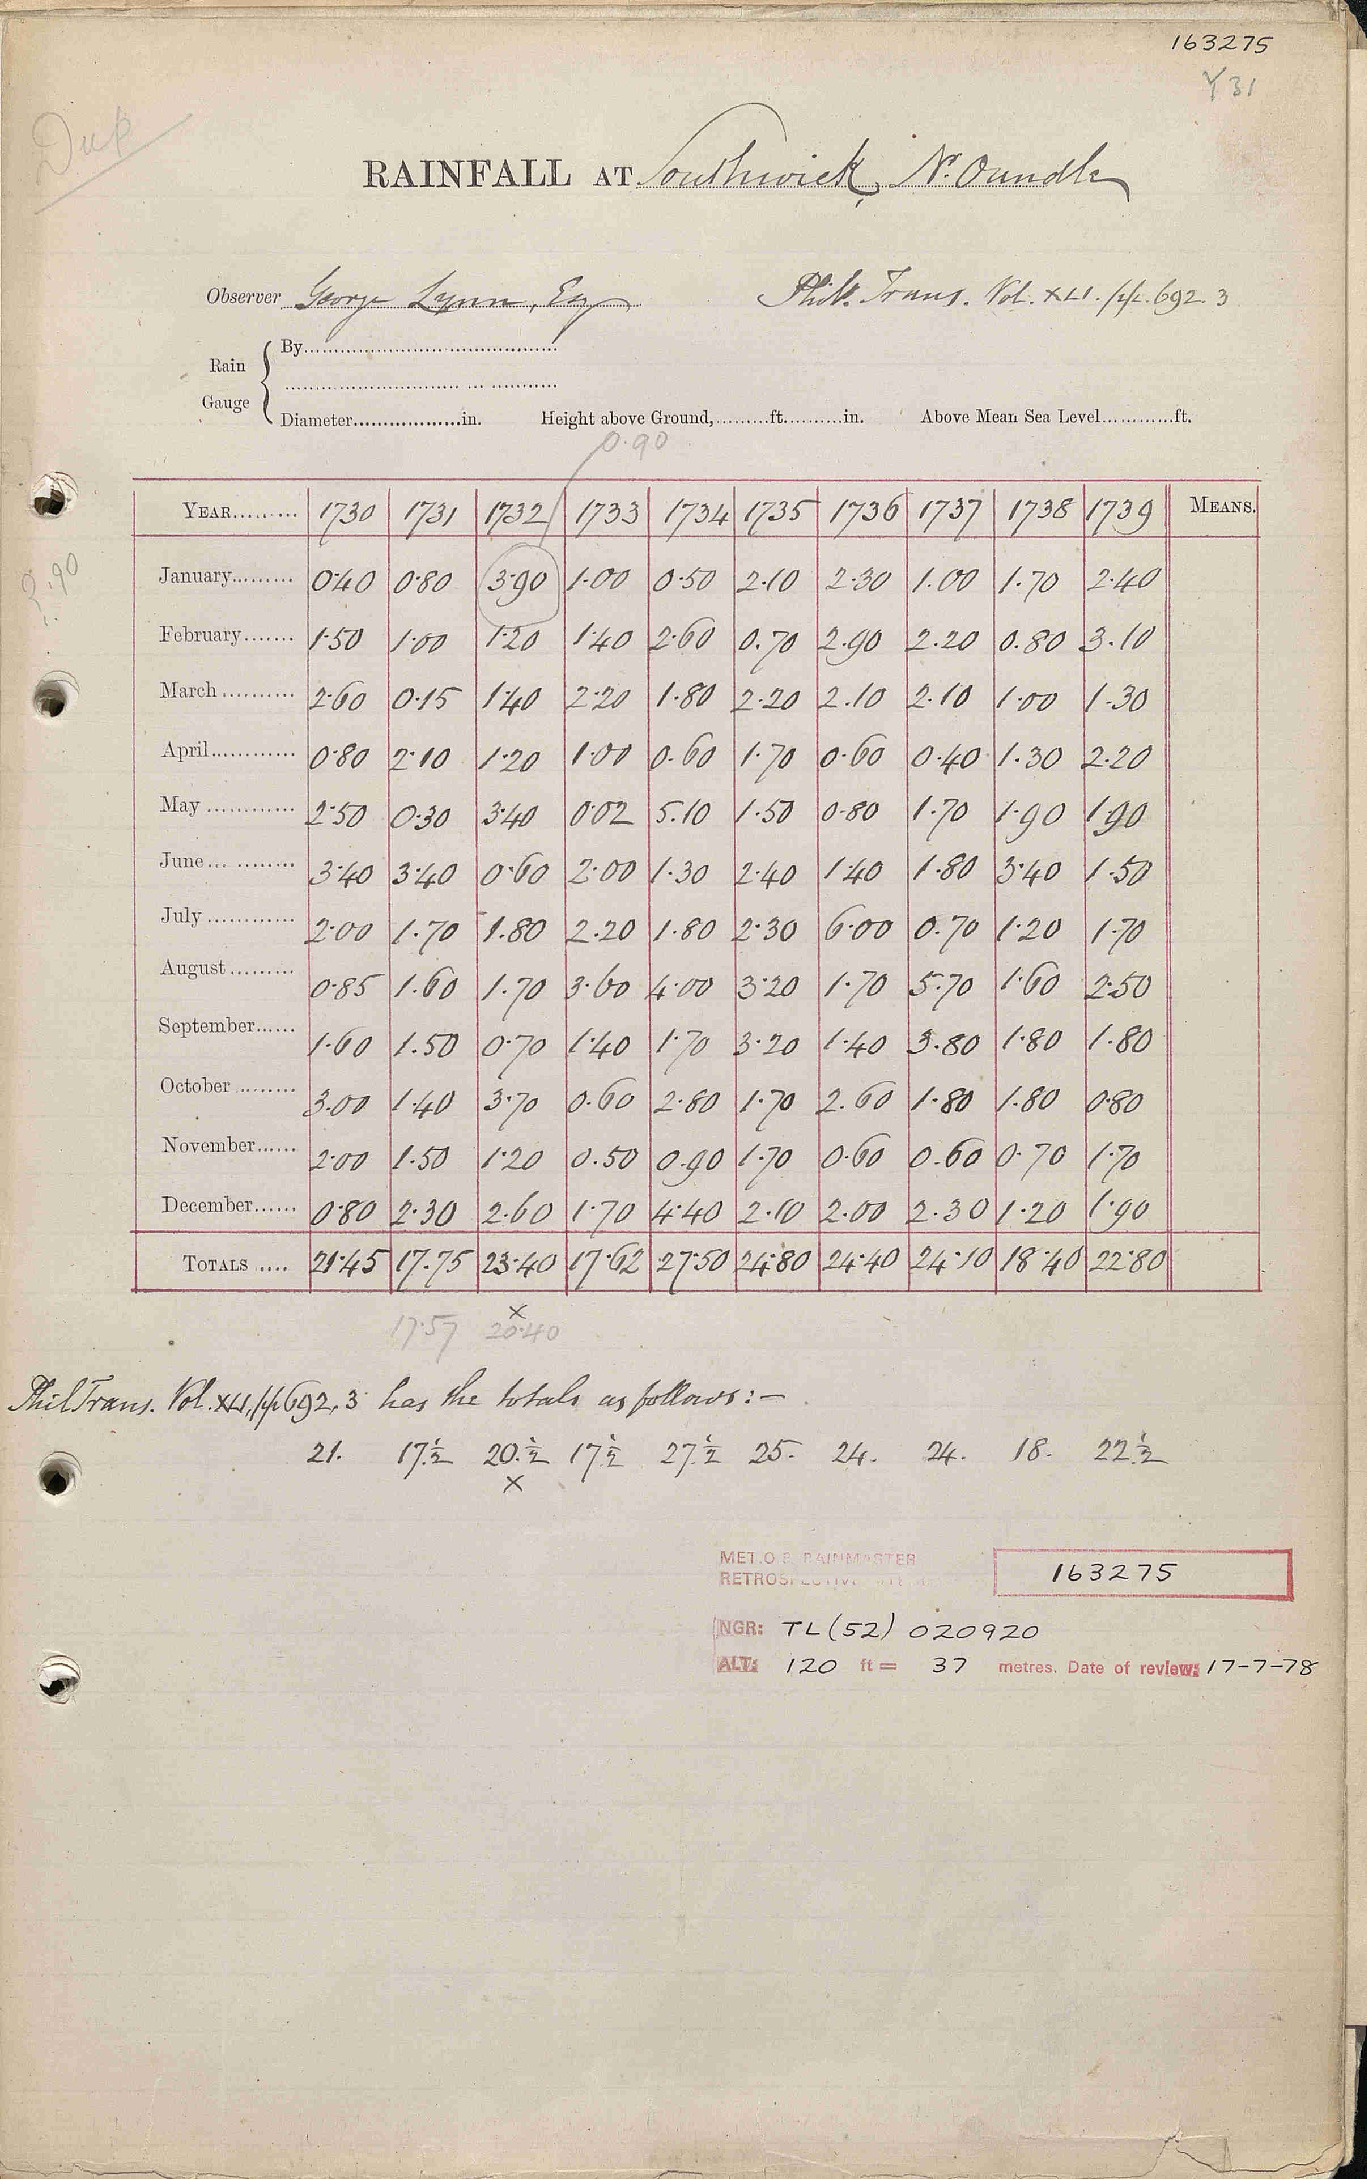 163275
Y 31
Dup
RAINFALL AT Southwick, Nr. Oundle
Observer George Lynn, Esq Phil. Trans. Vol. XLI. pp. 692.3
Rain Gauge { By
Diameter in. Height above Ground, ft. in. Above Mean Sea Level ft.
0.90
YEAR 1730 1731 1732 1733 1734 1735 1736 1737 1738 1739 MEANS.
January 0.40 0.80 3.90 1.00 0.50 2.10 2.30 1.00 1.70 2.40
February 1.50 1.00 1.20 1.40 2.60 0.70 2.90 2.20 0.80 3.10
March 2.60 0.15 1.40 2.20 1.80 2.20 2.10 2.10 1.00 1.30
April 0.80 2.10 1.20 1.00 0.60 1.70 0.60 0.40 1.30 2.20
May 2.50 0.30 3.40 0.02 5.10 1.50 0.80 1.70 1.90 1.90
June 3.40 3.40 0.60 2.00 1.30 2.40 1.40 1.80 3.40 1.50
July 2.00 1.70 1.80 2.20 1.80 2.30 6.00 0.70 1.20 1.70
August 0.85 1.60 1.70 3.60 4.00 3.20 1.70 5.70 1.60 2.50
September 1.60 1.50 0.70 1.40 1.70 3.20 1.40 3.80 1.80 1.80
October 3.00 1.40 3.70 0.60 2.80 1.70 2.60 1.80 1.80 0.80
November 2.00 1.50 1.20 0.50 0.90 1.70 0.60 0.60 0.70 1.70
December 0.80 2.30 2.60 1.70 4.40 2.10 2.00 2.30 1.20 1.90
TOTALS 21.45 17.75 23.40 17.62 27.50 24.80 24.40 24.10 18.40 22.80
x
17.57 20.40
Phil Trans. Vol. XLI, pp 692,3 has the totals as follows:-
21. 17½ 20.½ 17½ 27½ 25. 24. 24. 18. 22½
x
MET.O.8. RAINMASTER
RETROSPECTIVE 163275
NGR: TL (52) 020920
ALT: 120 ft = 37 metres. Date of review: 17-7-78